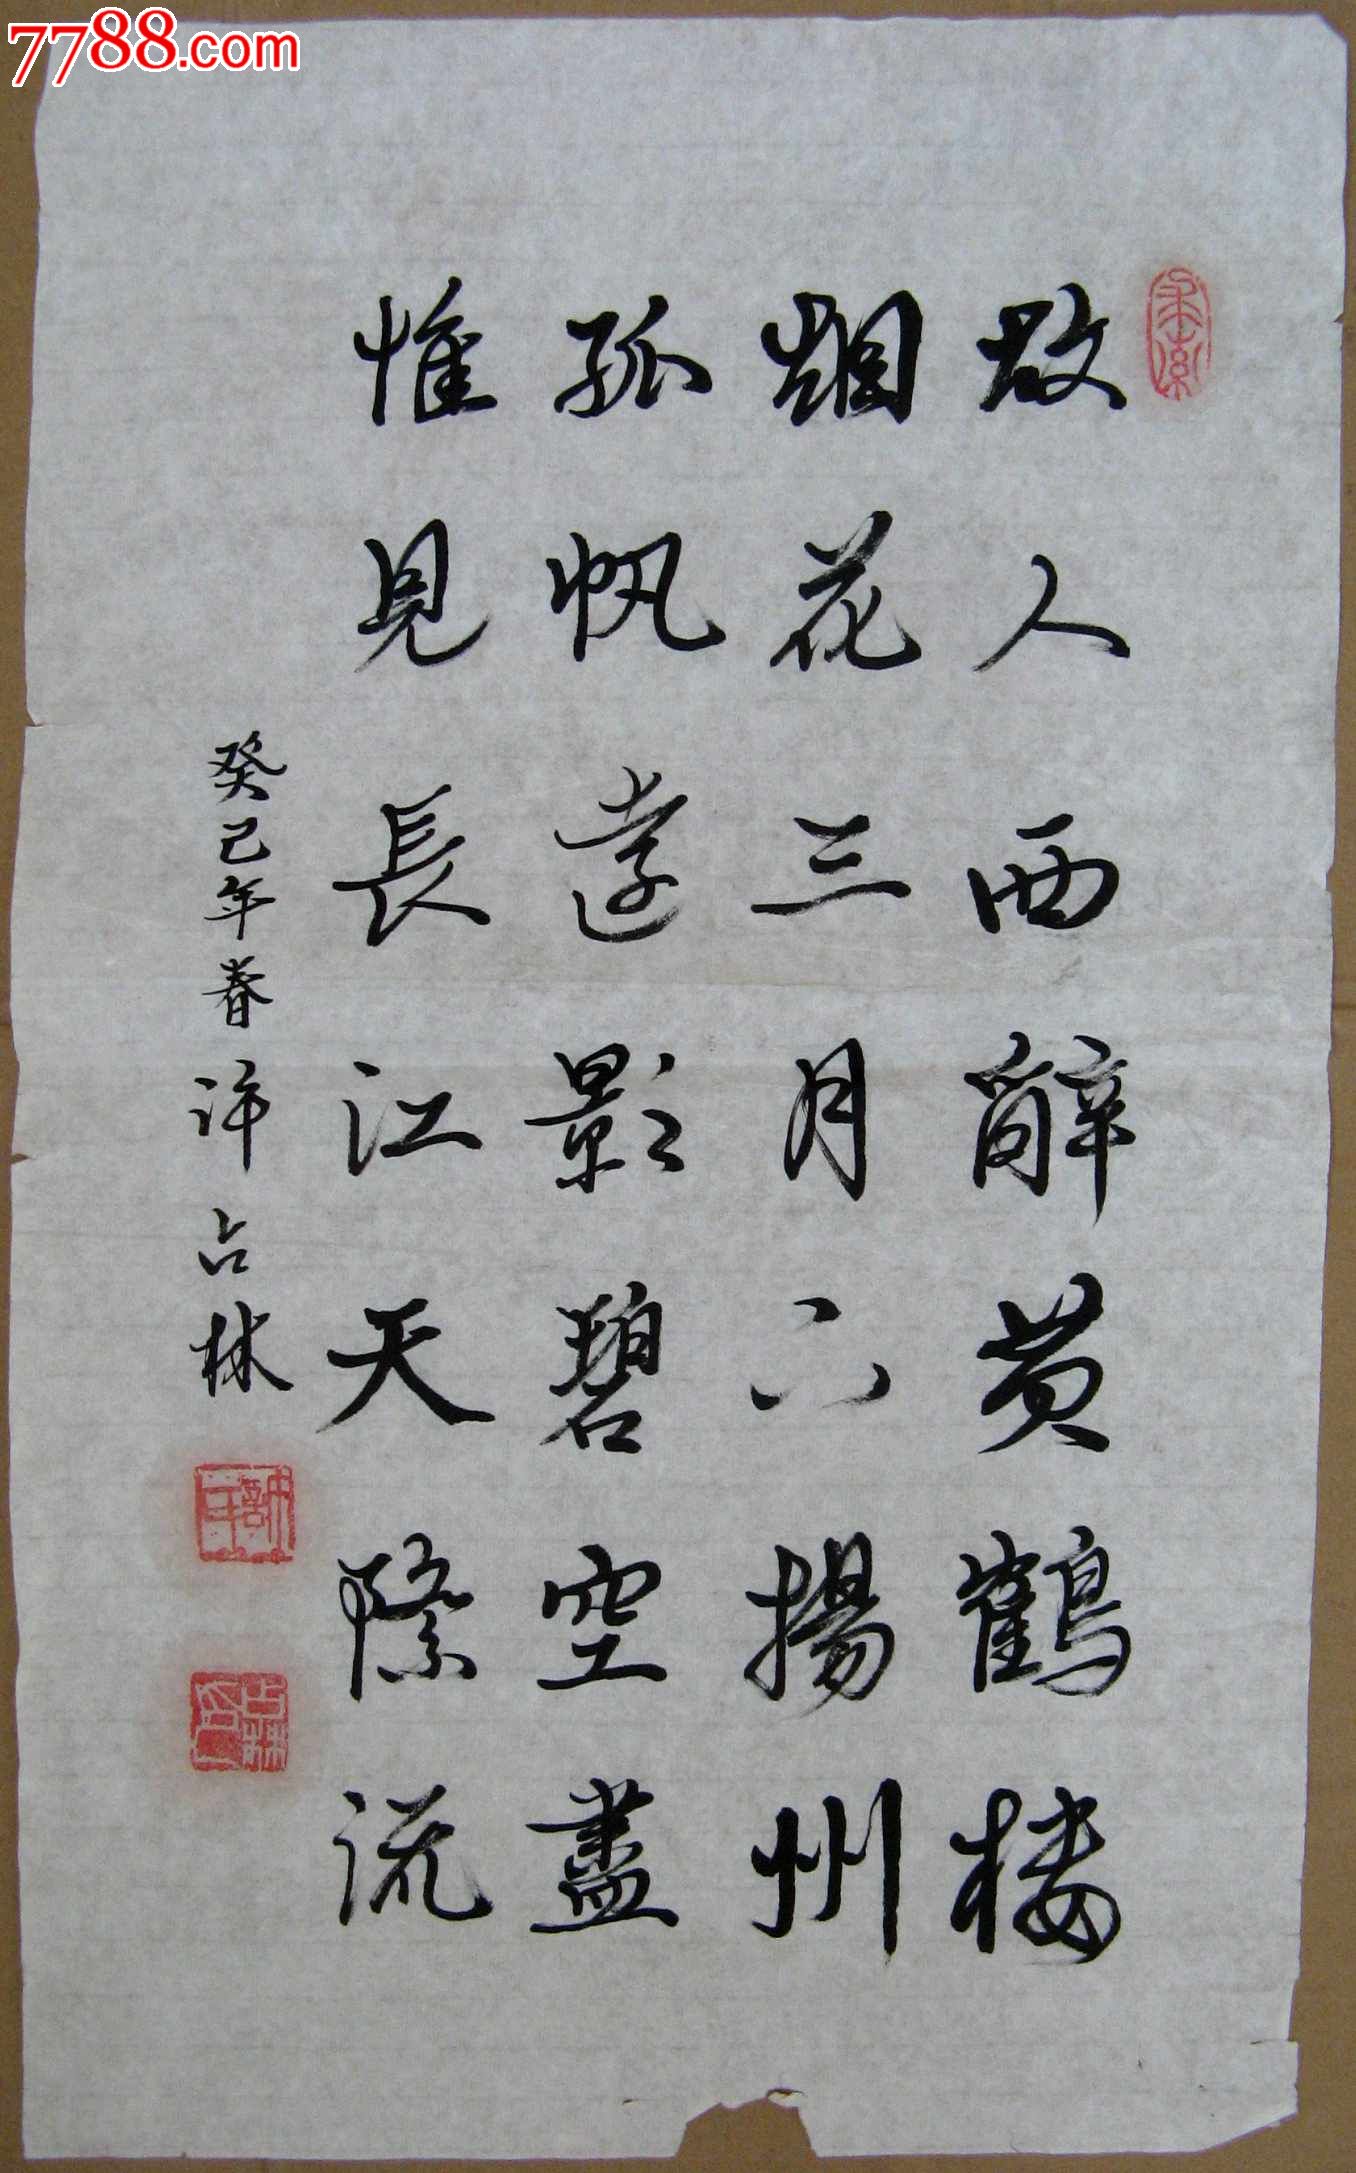 故人西辭黄鶴楼
烟花三月下揚州
孤帆遠影碧空盡
惟見長江天際流
癸巳年春许占林
占林
7788.com